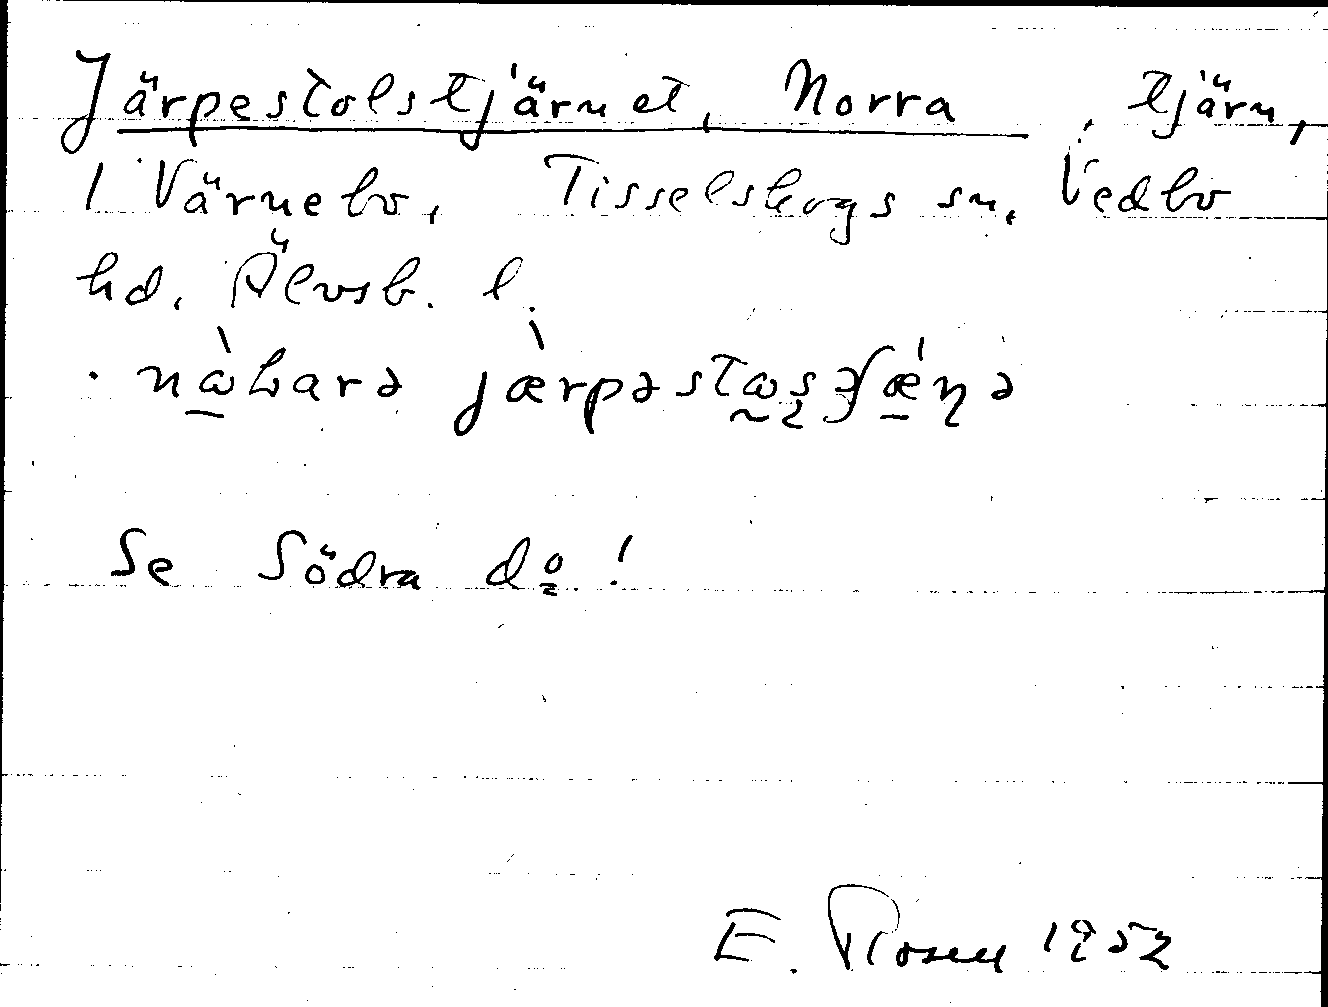 Järpestolstjärnet, Norra, tjärn,
1 Värnebo, Tisselskogs sn, Vedbo
hd, Älvsb. l.
Se Södra do!
E. Rosen 1952